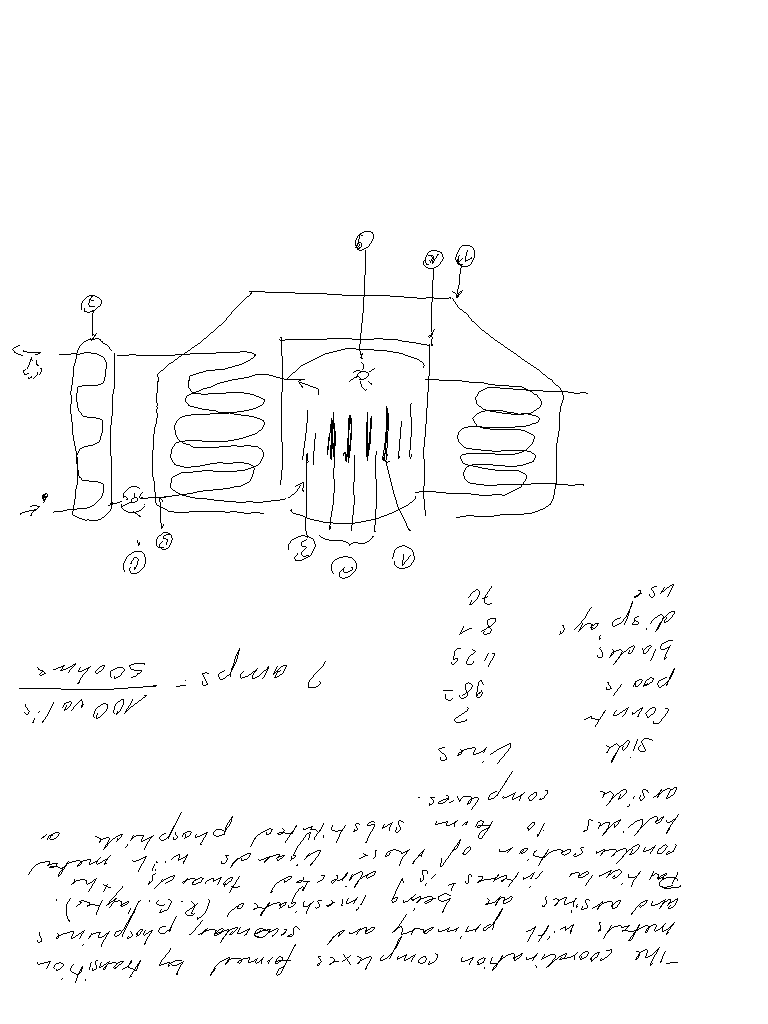 The coordination complexes formed by transition
metals with primary and secondary phosphines
and arsines are being investigated (R. G. Hayter).
Particular interest is directed towards the
condensation of these ligands with metal
halides to form substituted phosphide or
arside complexes.
side lines
Count 2
pools 982
blades 429
displays 81
use 70
2 amps = 100 volts
50 ohms
1
2
3
11